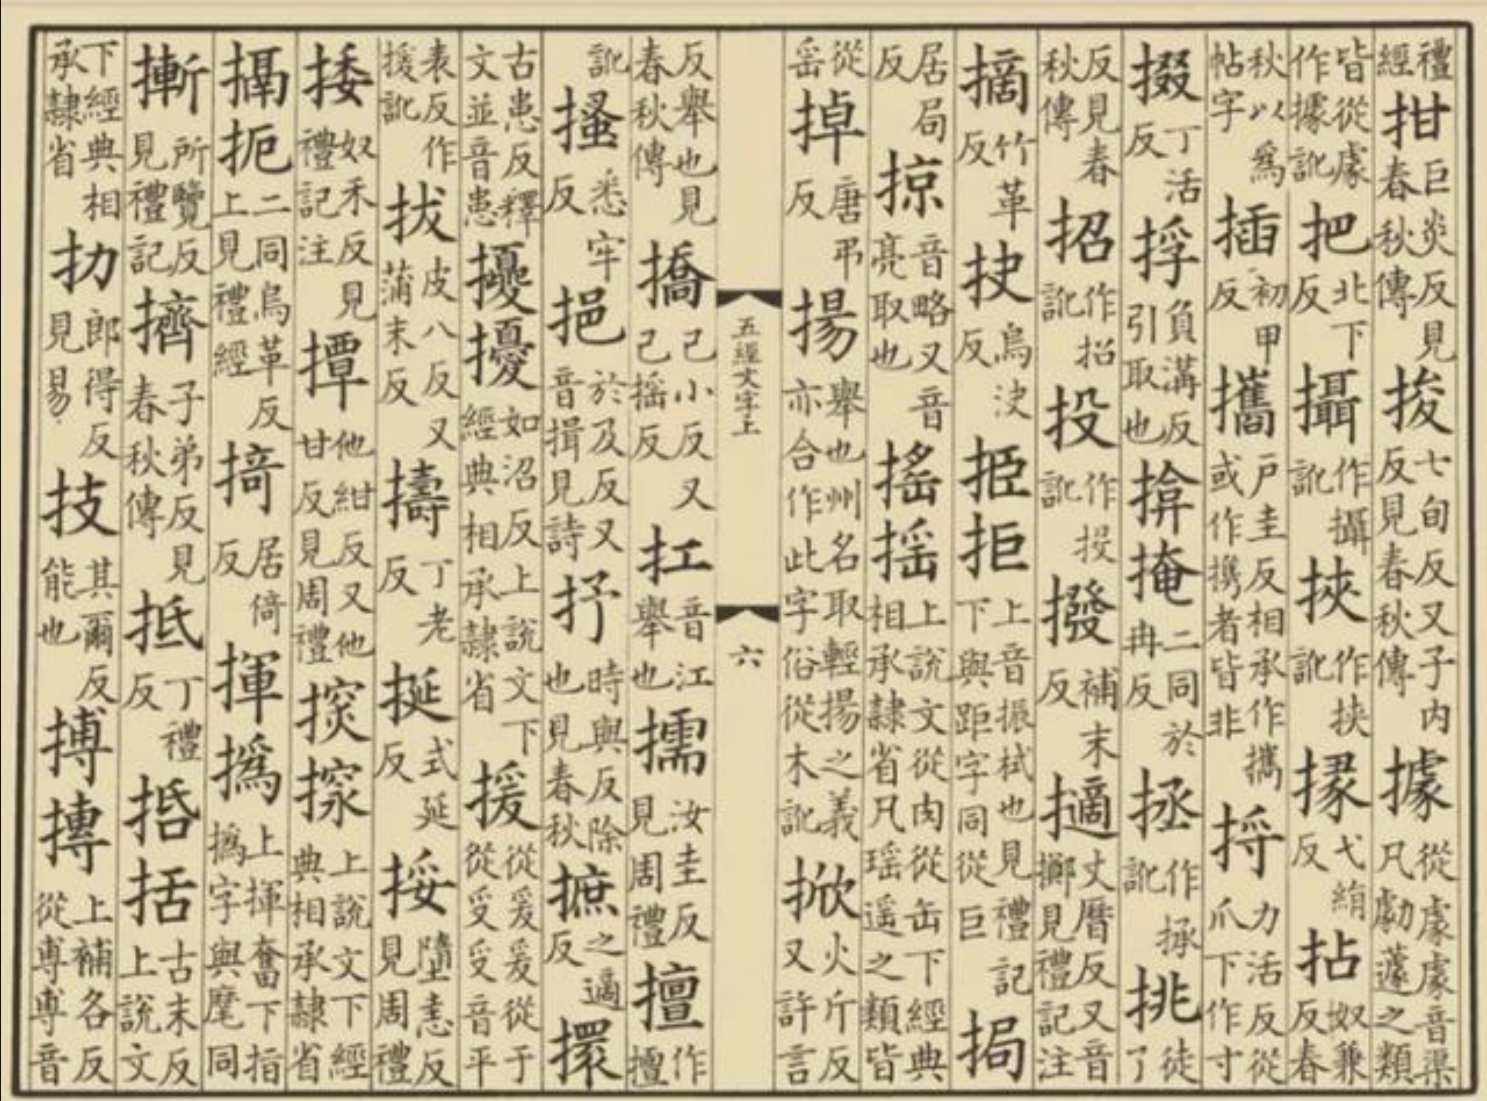 禮經拑巨炎反見春秋傳捘七旬反又子内反見春秋傳據從豦豦音渠凡劇蘧之類
皆從豦作據訛把北下反攝作攝訛挾作挾訛掾弋絹反拈奴兼反春
秋以爲帖字插初甲反攜戶圭反相承作攜或作携者皆非捋力活反從爪下作寸
掇丁活反捊負溝反引取也揜掩二同於冉反拯作拯訛挑徒了
反見春秋傳招作招訛投作投訛撥補末反擿丈曆反又音擲見禮記注
摘竹革反抉烏決反挋拒上音振拭也見禮記下與距字同從巨挶
居局反掠音略又音亮取也搖揺上說文從肉從缶下經典相承隸省凡瑶遥之類皆
從䍃掉唐弔反揚舉也州名取輕揚之義亦合作此字俗從木訛掀火斤反又許言
五經文字上
六
反舉也見春秋傳撟己小反又己摇反扛音江舉也擩汝圭反見周禮擅作擅
訛搔悉牢反挹於及反又音揖見詩抒時與反除也見春秋摭之適反擐
古患反釋文並音患擾如沼反上說文下經典相承隸省援從爰爰從于從受受音平
表反作援訛拔皮八反又蒲末反擣丁老反挻式延反挼墮恚反見周禮
捼奴禾反見禮記注撢他紺反又他甘反見周禮探上說文下經典相承隸省
搹扼二同烏革反上見禮經掎居倚反揮撝上揮奮下指撝字與麾同
摲所覽反見禮記擠子弟反見春秋傳抵丁禮反括古末反上說文
下經典相承隸省扐郎得反見易技其爾反能也搏摶上補各反從尃尃音